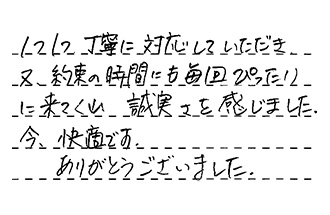 1つ1つ丁寧に対応していただき
又、約束の時間にも毎回ぴったり
に来てくれ 誠実さを感じました.
今、快適です.
ありがとうございました.